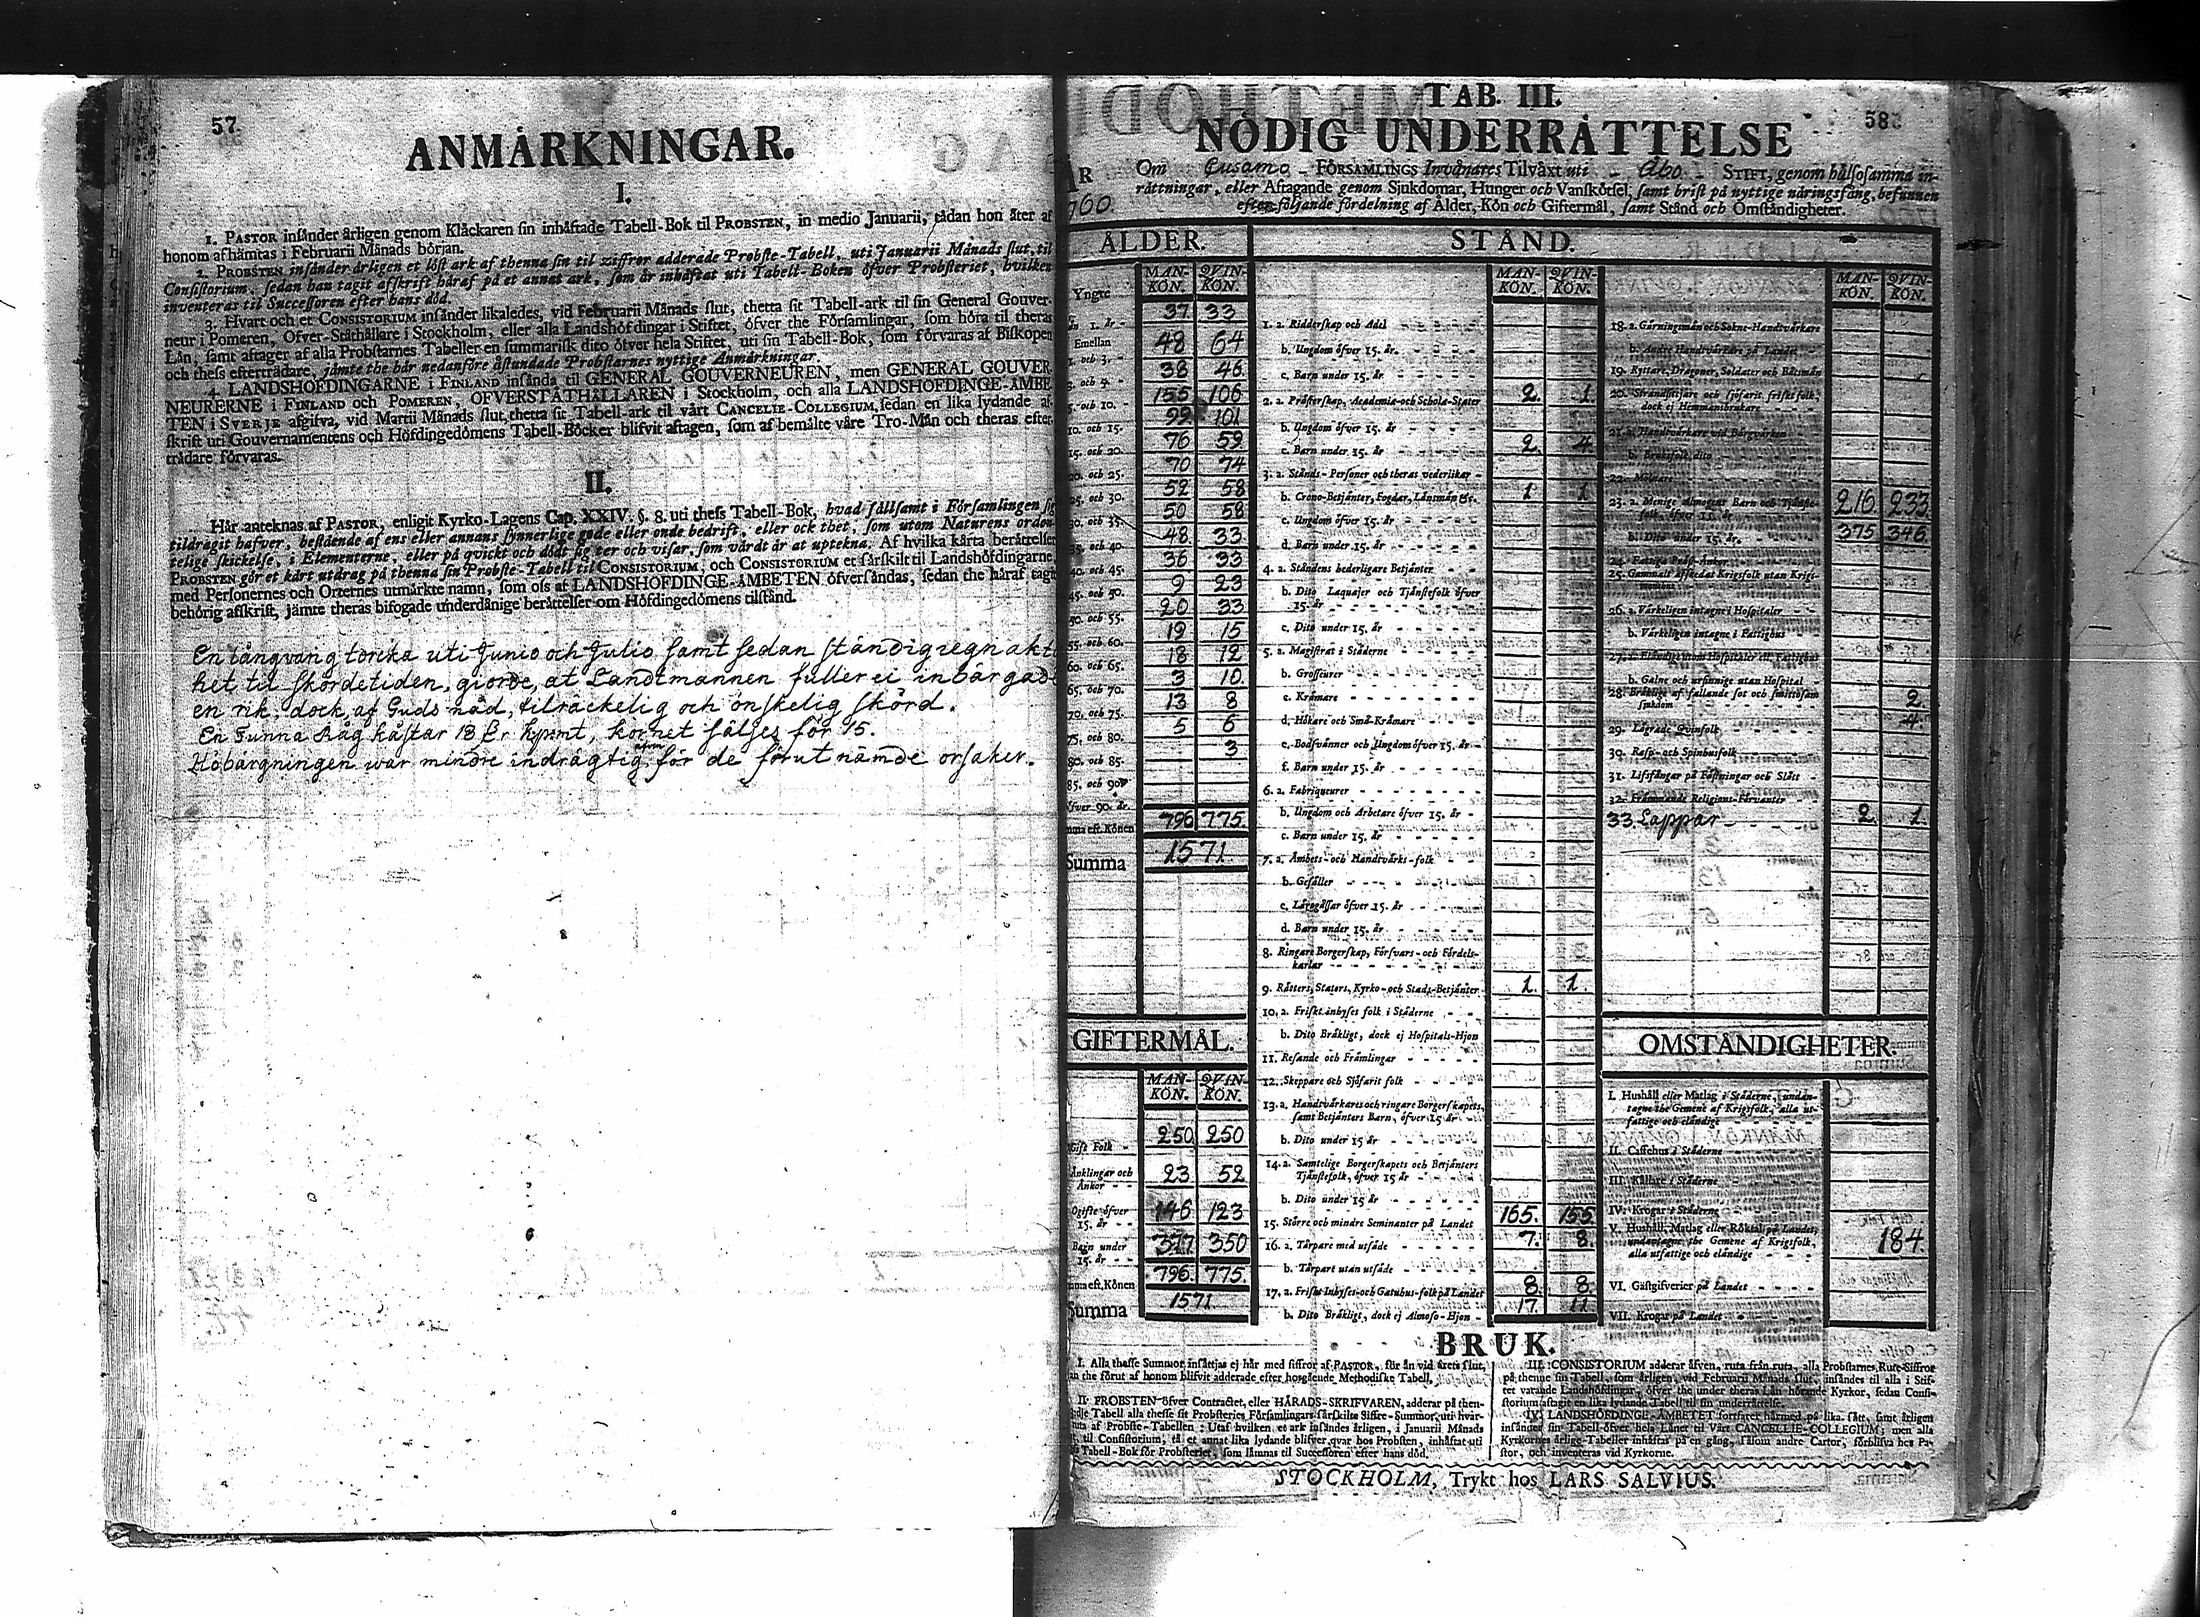 57
ANMÅRKNINGAR.
I.
1. PASTOR insånder årligen genom Klåckaren sin inhåftade Tabell-Bok til PROBSTEN, in medio Januarii, sådan hon åter af
honom afhåmtas i Februarii Månads början.
2. PROBSTEN insånder årligen et löst ark af thenna sin til ziffror adderade Probste-Tabell, uti Januarii Månads slut, til
Consistorium, sedan han tagit afskrift håraf på et annat ark, som år inhåftat uti Tabell-Boken öfver Probsteriet, hvilken
inventeras til Successoren efter hans död.
3. Hvart och et CONSISTORIUM insånder likaledes, vid Februarii Månads slut, thetta sit Tabell-ark til sin General Gouver-
neur i Pomeren, Öfver-Ståthållare i Stockholm, eller alla Landshöfdingar i Stiftet, öfver the Församlingar, som höra til theras
Lån, samt aftager af alla Probstarnes Tabeller en summarisk dito öfver hela Stiftet, uti sin Tabell-Bok, som förvaras af Biskopen
och thess eftertrådare, jåmte the hår nedanföre åstundade Probstarnes nyttige Anmårkningar.
4. LANDSHÖFDINGARNE i FINLAND insånda til GENERAL GOUVERNEUREN, men GENERAL GOUVER-
NEURERNE i FINLAND och POMEREN, ÖFVERSTÅTHÅLLAREN i Stockholm, och alla LANDSHÖFDINGE-ÅMBE-
TEN i SVERJE afgifva, vid Martii Månads slut, thetta sit Tabell-ark til vårt CANCELIE-COLLEGIUM, sedan en lika lydande af-
skrift uti Gouvernamentens och Höfdingedömens Tabell-Böcker blifvit aftagen, som af bemålte våre Tro-Mån och theras efter-
trådare förvaras.
II.
Hår anteknas af PASTOR, enligit Kyrko-Lagens Cap. XXIV. §. 8. uti thess Tabell-Bok, hvad sållsamt i Församlingen sig
tildragit hafver, bestående af ens eller annans synnerlige gode eller onde bedrift, eller ock thet, som utom Naturens orden-
telige skickelse, i Elementerne, eller på qvickt och dödt sig ter och visar, som vårdt år at uptekna. Af hvilka kårta beråttelser
PROBSTEN gör et kårt utdrag på thenna sin Probste-Tabell til CONSISTORIUM, och CONSISTORIUM et sårskilt til Landshöfdingarne,
med Personernes och Orternes utmårkte namn, som oss af LANDSHÖFDINGE-ÅMBETEN öfversåndas, sedan the håraf tagit
behörig afskrift, jåmte theras bifogade underdånige beråttelser om Höfdingedömens tilstånd.
En långvarig torcka uti Junio och Julio samt sedan ständig regnakt
het til skördetiden, giorde, at Landtmannen fuller ei inbärgade
en rik, dock, af Guds nåd, tilräckelig och önskelig skörd.
En Tunna Råg kåstar 18 kpmt, kornet säljes för 15.
Höbärgningen war mindre indrägtig äfven för de förut nämde orsaker.
58
TAB. III.
NÖDIG UNDERRÅTTELSE
ÅR
1760
Om Cusamo FÖRSAMLINGS Invånares Tilvåxt uti Åbo STIFT, genom hålsosamma in-
råttningar, eller Aftagande genom Sjukdomar, Hunger och Vanskötsel, samt brist på nyttige nåringsfång, befunnen
efter följande fördelning af Ålder, Kön och Giftermål, samt Stånd och Omståndigheter.
ÅLDER.
MAN-KÖN. QVIN-KÖN.
Yngre
än 1. år - 37 33
Emellan
1. och 3. - 48 64
3. och 5. - 38 46
5. och 10. - 155 106
10. och 15. 99 101
15. och 20. 76 59
20. och 25. 70 74
25. och 30. 52 58
30. och 35. 50 58
35. och 40. 48 33
40. och 45. 36 33
45. och 50. 9 23
50. och 55. 20 33
55. och 60. 19 15
60. och 65. 18 12
65. och 70. 3 10
70. och 75. 13 8
75. och 80. 5 6
80. och 85. 3
85. och 90.
öfver 90. år.
Summa eft. Könen 796 775
Summa 1571
GIFTERMÅL.
MAN-KÖN. QVIN-KÖN.
Gift Folk - 250 250
Ånklingar och Ånkor - - 23 52
Ogifte öfver 15. år - - 146 123
Barn under 15. år - - 377 350
Summa eft. Könen 796. 775.
Summa 1571
STÅND.
MAN-KÖN. QVIN-KÖN.
1. a. Ridderskap och Adel
b. Ungdom öfver 15. år.
c. Barn under 15. år
2. a. Pråsterskap, Academiæ och Scholæ-Stater 2. 1.
b. Ungdom öfver 15. år
c. Barn under 15. år 2. 4.
3. a. Stånds-Personer och theras vederlikar
b. Crono-Betjånter, Fogdar, Lånsmån &c. 1. 1.
c. Ungdom öfver 15. år
d. Barn under 15. år
4. a. Ståndens hederligare Betjånter
b. Dito Laquajer och Tjånstefolk öfver 15. år
c. Dito under 15. år
5. a. Magistrat i Ståderne
b. Grosseurer
c. Kråmare
d. Hökare och Små-Kråmare
e. Bodsvånner och Ungdom öfver 15. år
f. Barn under 15. år
6. a. Fabriqueurer
b. Ungdom och Arbetare öfver 15. år
c. Barn under 15. år
7. a. Åmbets- och Handtvårks-folk
b. Gesåller
c. Lårogåssar öfver 15. år
d. Barn under 15. år
8. Ringare Borgerskap, Försvars- och Fördels-karlar
9. Råtters, Staters, Kyrko- och Stads-Betjånter 1. 1.
10. a. Friskt inhyses folk i Ståderne
b. Dito Bråkligt, dock ej Hospitals-Hjon
11. Resande och Fråmlingar
12. Skeppare och Sjöfarit folk
13. a. Handtvårkares och ringare Borgerskapets, samt Betjånters Barn, öfver 15 år
b. Dito under 15 år
14. a. Samtelige Borgerskapets och Betjånters Tjånstefolk, öfver 15 år
b. Dito under 15 år
15. Större och mindre Seminanter på Landet 165. 155.
16. a. Tårpare med utsåde 7. 8.
b. Tårpare utan utsåde
17. a. Friskt Inhyses- och Gatuhus-folk på Landet 8. 8.
b. Dito Bråkligt, dock ej Almoso-Hjon 17. 11.
MAN-KÖN. QVIN-KÖN.
18. a. Gårningsmån och Sokne-Handtvårkare
b. Andre Handtvårkare på Landet
19. Ryttare, Dragoner, Soldater och Båtsmån
20. Strandsittjare och sjöfarit friskt folk, dock ej Hemmansbrukare
21. a. Handtvårkare vid Bårgvårken
b. Bruksfolk dito
22. Mölnare
23. a. Menige Almogens Barn och Tjånste-folk, öfver 15. år 216. 233.
b. Dito under 15. år. 375. 346.
24. Fattiga Pråst-Ånkor
25. Gammalt afskedat Krigsfolk utan Krigs-
26. a. Vårkeligen intagne i Hospitaler
b. Vårkeligen intagne i Fattighus
27. a. Elåndige utom Hospitaler ell. Fattighus
b. Galne och ursinnige utan Hospital
28. Bråklige af fallande sot och smittosam siukdom 2
29. Lågrade Qvinfolk 4.
30. Rasp- och Spinhusfolk
31. Lifsfångar på Fåstningar och Slått
32. Fråmmande Religions-Förvanter
33. Lappar 2. 1.
OMSTÅNDIGHETER.
I. Hushåll eller Matlag i Ståderne, undan-
tagne the Gemene af Krigsfolk, alla ut-
fattige och elåndige
II. Caffehus i Ståderne
III. Kållare i Ståderne
IV. Krogar i Ståderne
V. Hushåll, Matlag eller Röktal på Landet,
undantagne the Gemene af Krigsfolk,
alla utfattige och elåndige 184.
VI. Gåstgifverier på Landet
VII. Krogar på Landet
BRUK.
I. Alla thesse Summor insåttjas ej hår med siffror af PASTOR, för ån vid årets slut,
än the förut af honom blifvit adderade efter hosgående Methodiske Tabell.
II. PROBSTEN öfver Contractet, eller HÅRADS-SKRIFVAREN, adderar på then-
Tabell alla thesse sit Probsteries Församlingars sårskilte Siffre-Summor, uti hvar-
ruta af Probste-Tabellen: Utaf hvilken et ark insåndes årligen, i Januarii Månads
til Consistorium, tå et annat lika lydande blifver qvar hos Probsten, inhåftat uti
Tabell-Bok för Probsteriet, som låmnas til Successoren efter hans död.
III. CONSISTORIUM adderar åfven, ruta från ruta, alla Probstarnes Rute-Siffror
på thenne sin Tabell, som årligen, vid Februarii Månads slut, insåndes til alla i Stif-
tet varande Landshöfdingar, öfver the under theras Lån hörande Kyrkor, sedan Consi-
storium aftagit en lika lydande Tabell til sin underråttelse.
IV. LANDSHÖFDINGE-ÅMBETET fortfaret hårmed på lika sått, samt årligen
insånder sin Tabell öfver hela Lånet til Vårt CANCELLIE-COLLEGIUM; men alla
Kyrkornes årlige Tabeller inhåftas på en gång, såsom andre Cartor, förblifva hos Pa-
stor, och inventeras vid Kyrkorne.
STOCKHOLM, Trykt hos LARS SALVIUS.